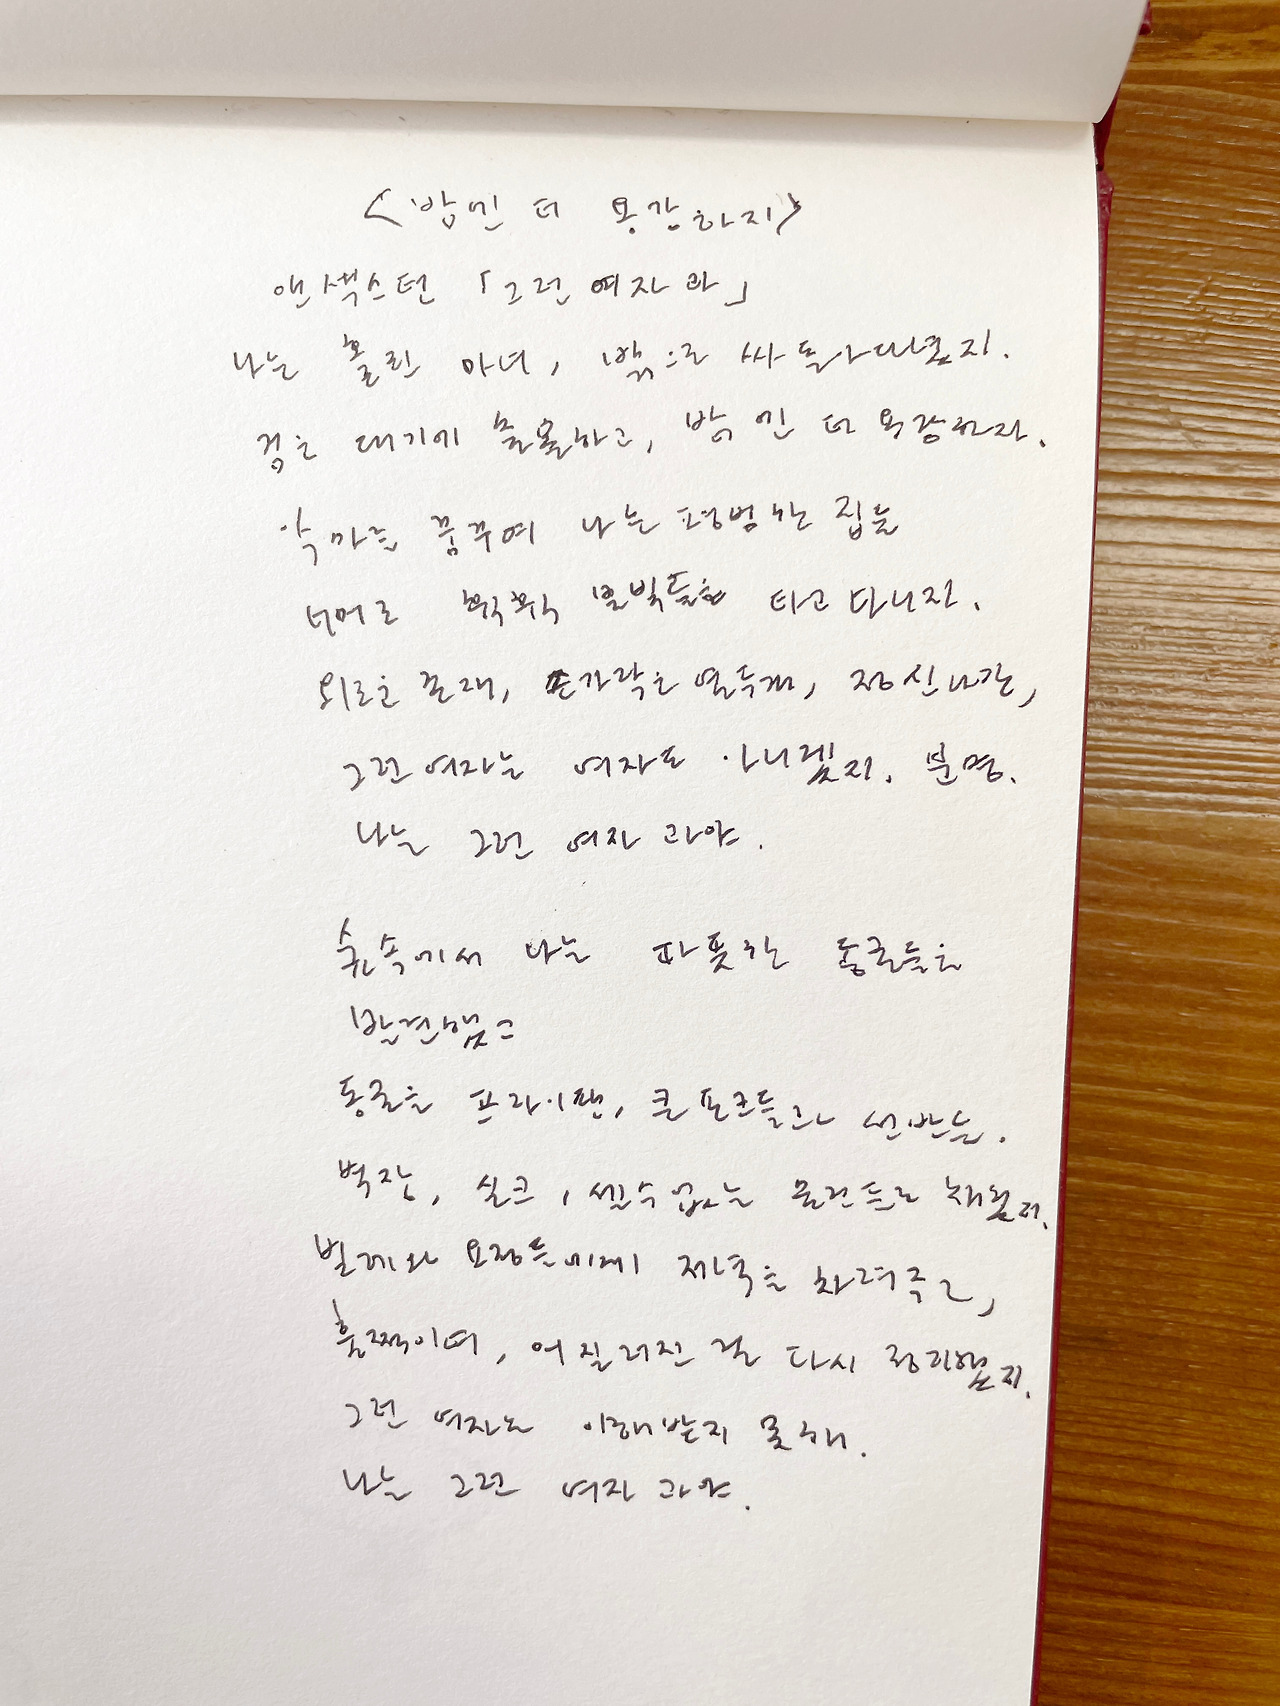 <밤엔 더 용감하지>
앤 섹스턴 「그런 여자 과」
나는 홀린 마녀, 밖으로 싸돌아다녔지.
검은 대기에 출몰하고, 밤엔 더 용감하지.
악마를 꿈꾸며 나는 평범한 집들
너머로 휙휙 불빛들을 타고 다니지.
외로운 존재, 손가락은 열두개, 정신 나간,
그런 여자는 여자도 아니겠지. 분명.
나는 그런 여자 과야.
숲속에서 나는 따뜻한 동굴들을
발견했고
동굴을 프라이팬, 큰 포크들과 선반들.
벽장, 실크, 셀 수 없는 물건들로 채웠지.
벌레와 요정들에게 저녁을 차려주고,
훌쩍이며, 어질러진 걸 다시 정리했지.
그런 여자는 이해받지 못해.
나는 그런 여자 과야.